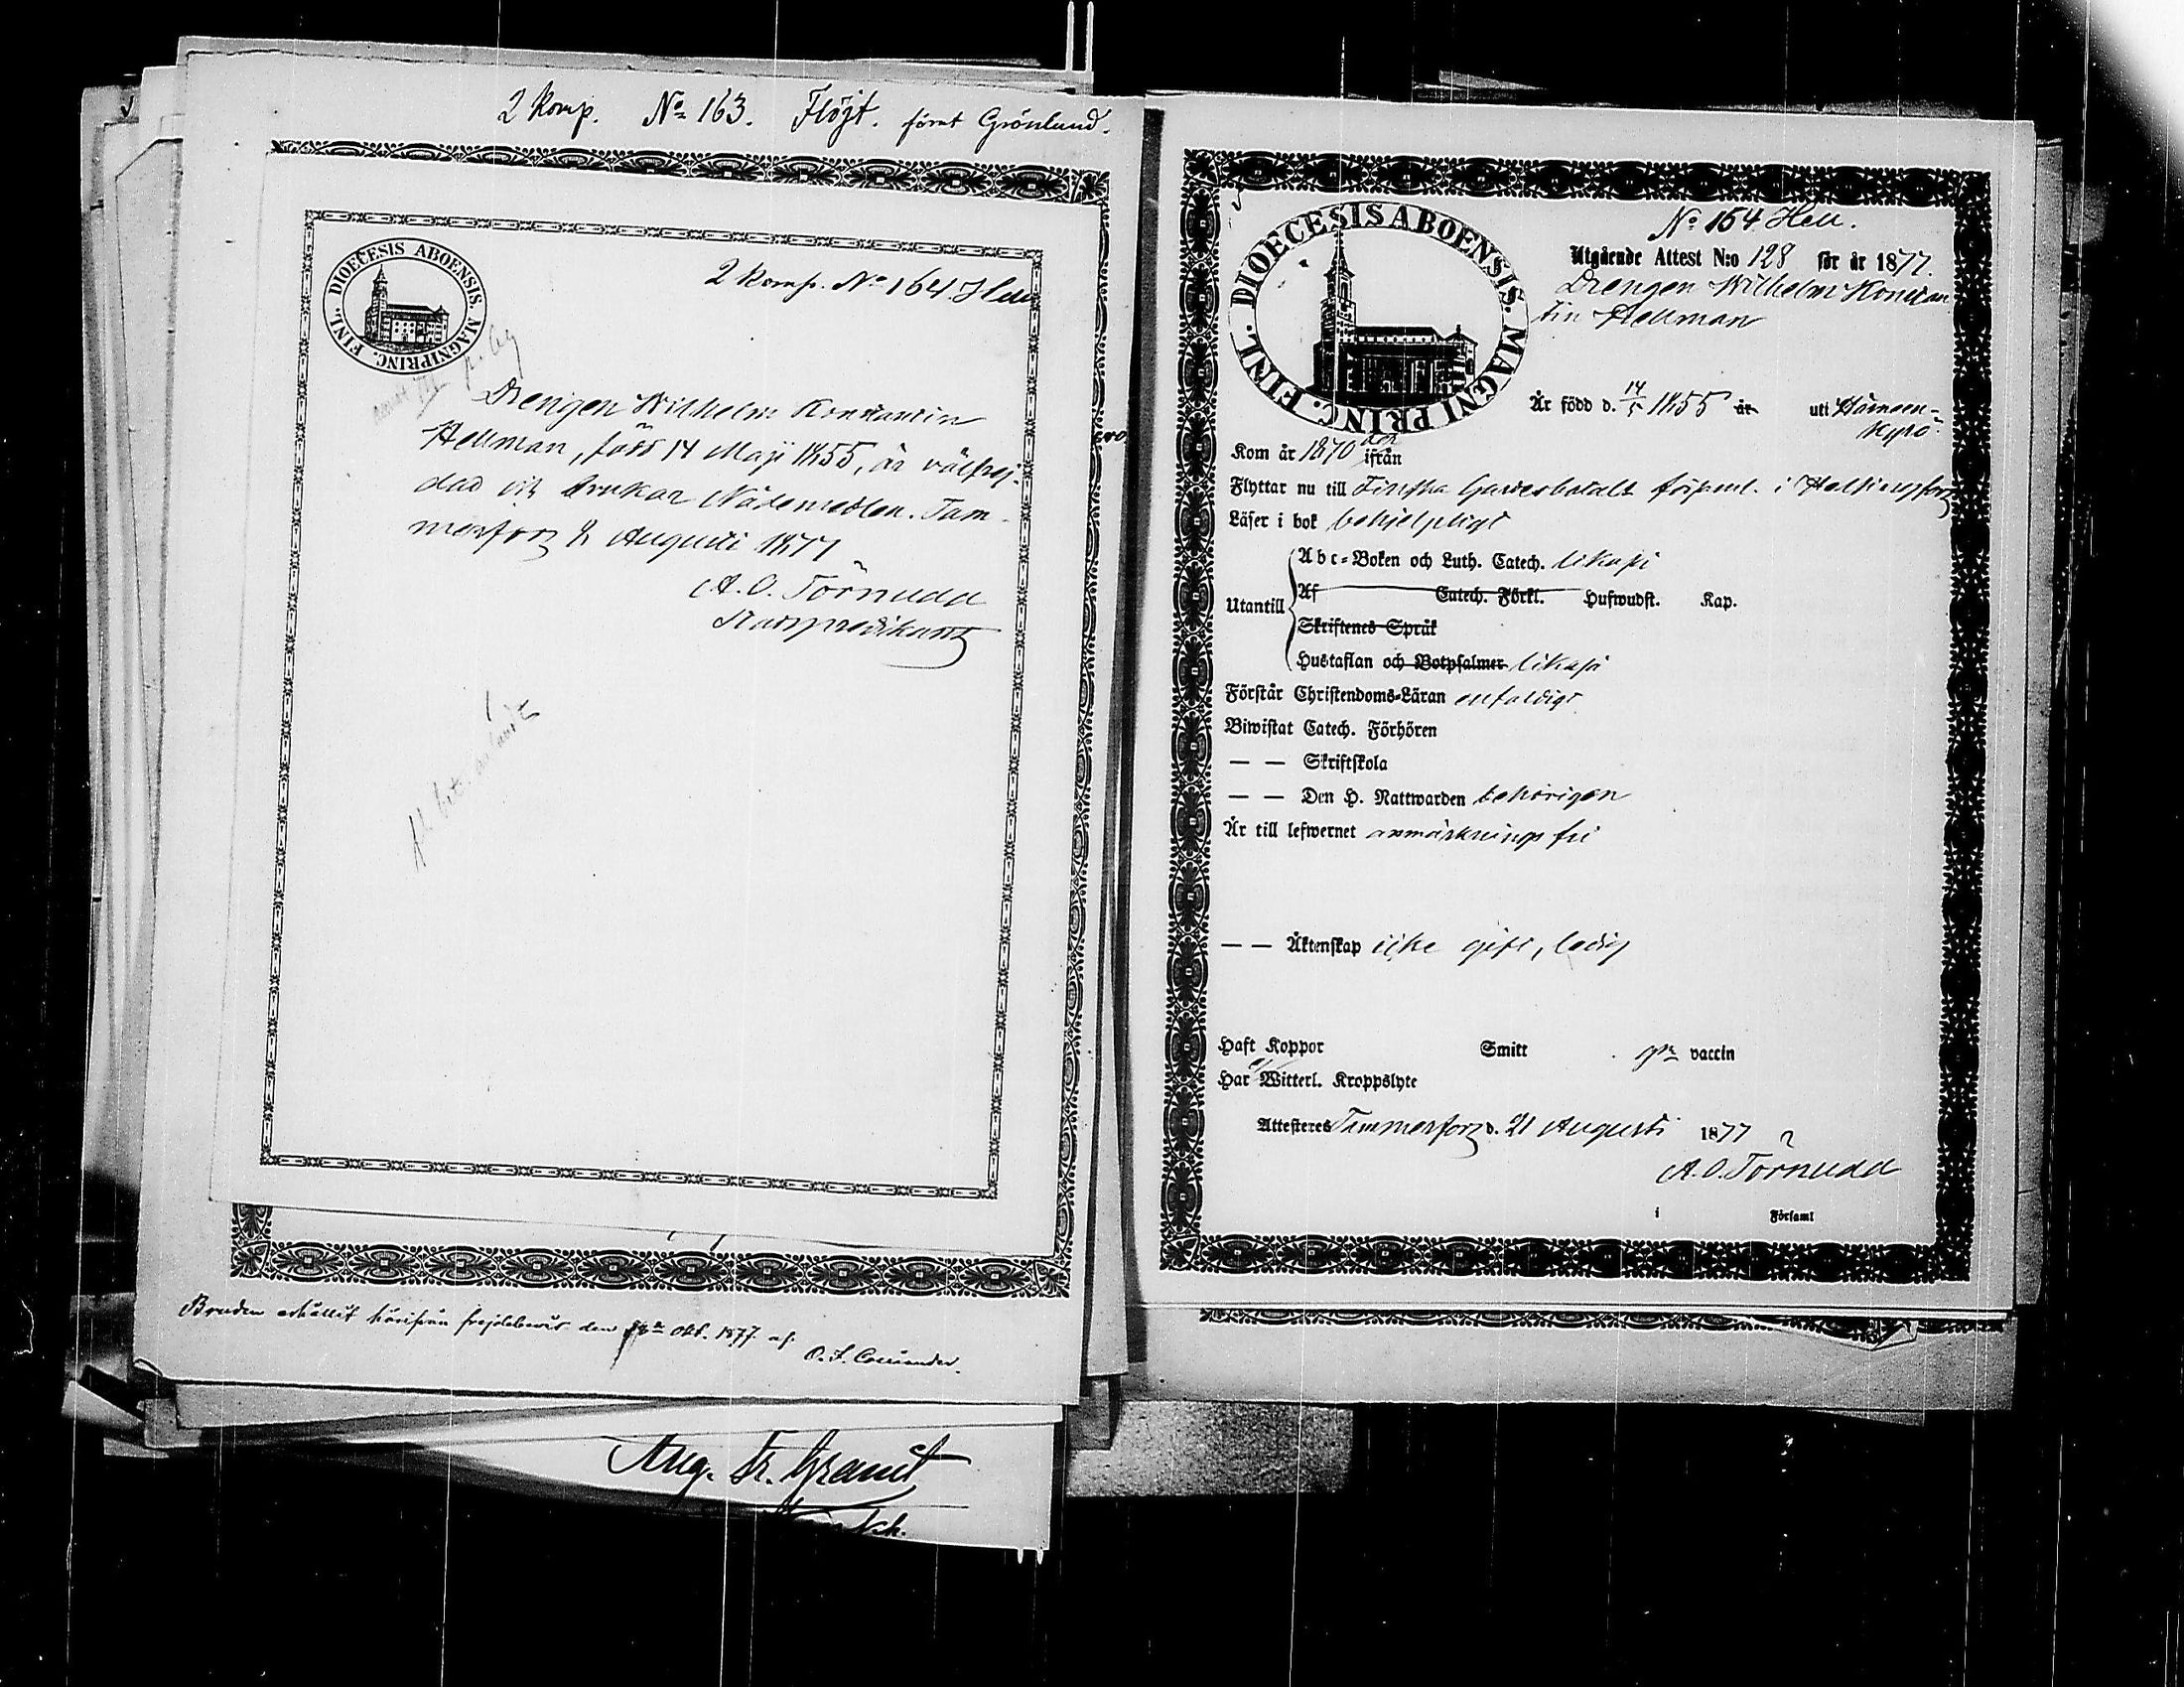 2 Komp. No 163. Flöjt. förut Grönlund.
DIOECESIS ABOENSIS. MAGNI PRINC. FINL.
2 Komp. No 164. Hell
Drengen Wilhelm Konstantin
Hellman, född 14 Maji 1855, är välfrej-
dad och brukar Nådemedlen. Tam-
merfors 2 Augusti 1877
A. O. Törnudd
Stadspredikant
Bruden erhållit härifrån frejdebevis den Okt. 1877. af.
Aug. Fr. Granit
DIOECESIS ABOENSIS. MAGNI PRINC. FINL.
No 154 Hell.
Utgående Attest N:o 128 för år 1877.
Drengen Wilhelm Konstan
tin Hellman
Är född d. 14/5 1855 år uti Hämeen-
kyrö.
Kom år 1870 ifrån
Flyttar nu till Finska Gardesbatalj. församl. i Helsingfors
Läser i bok behjelpligt
Utantill
Abc-Boken och Luth. Catech. likaså
Af Catech. Förkl. Hufwudst. Kap.
Skriftenes Språk
Hustaflan och Botpsalmer likaså
Förstår Christendoms-Läran enfaldigt
Biwistat Catech. Förhören
— — Skriftskola
— — Den H. Nattwarden behörigen
Är till lefwernet anmärkningsfri
— — Äktenskap icke gift, ledig
Haft Koppor Smitt vaccin
Har Witterl. Kroppslyte
Attesteres Tammerfors d. 21 Augusti 1877
A. O. Törnudd
i Församl